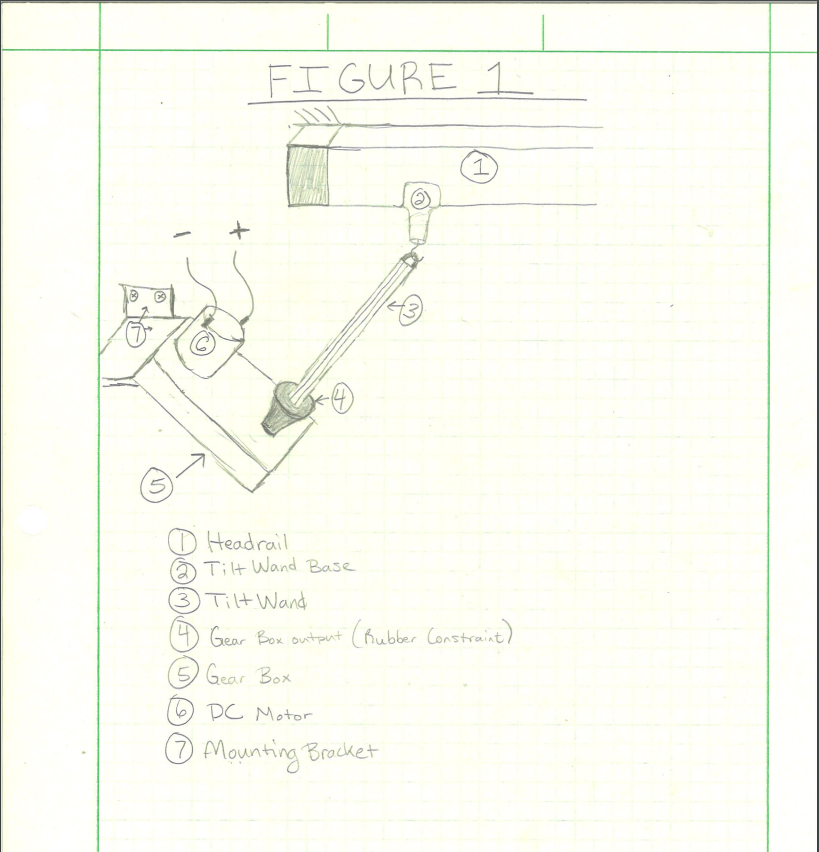 FIGURE 1
①
②
- +
③
⑦
⑥
④
⑤
① Headrail
② Tilt Wand Base
③ Tilt Wand
④ Gear Box output (Rubber Constraint)
⑤ Gear Box
⑥ DC Motor
⑦ Mounting Bracket